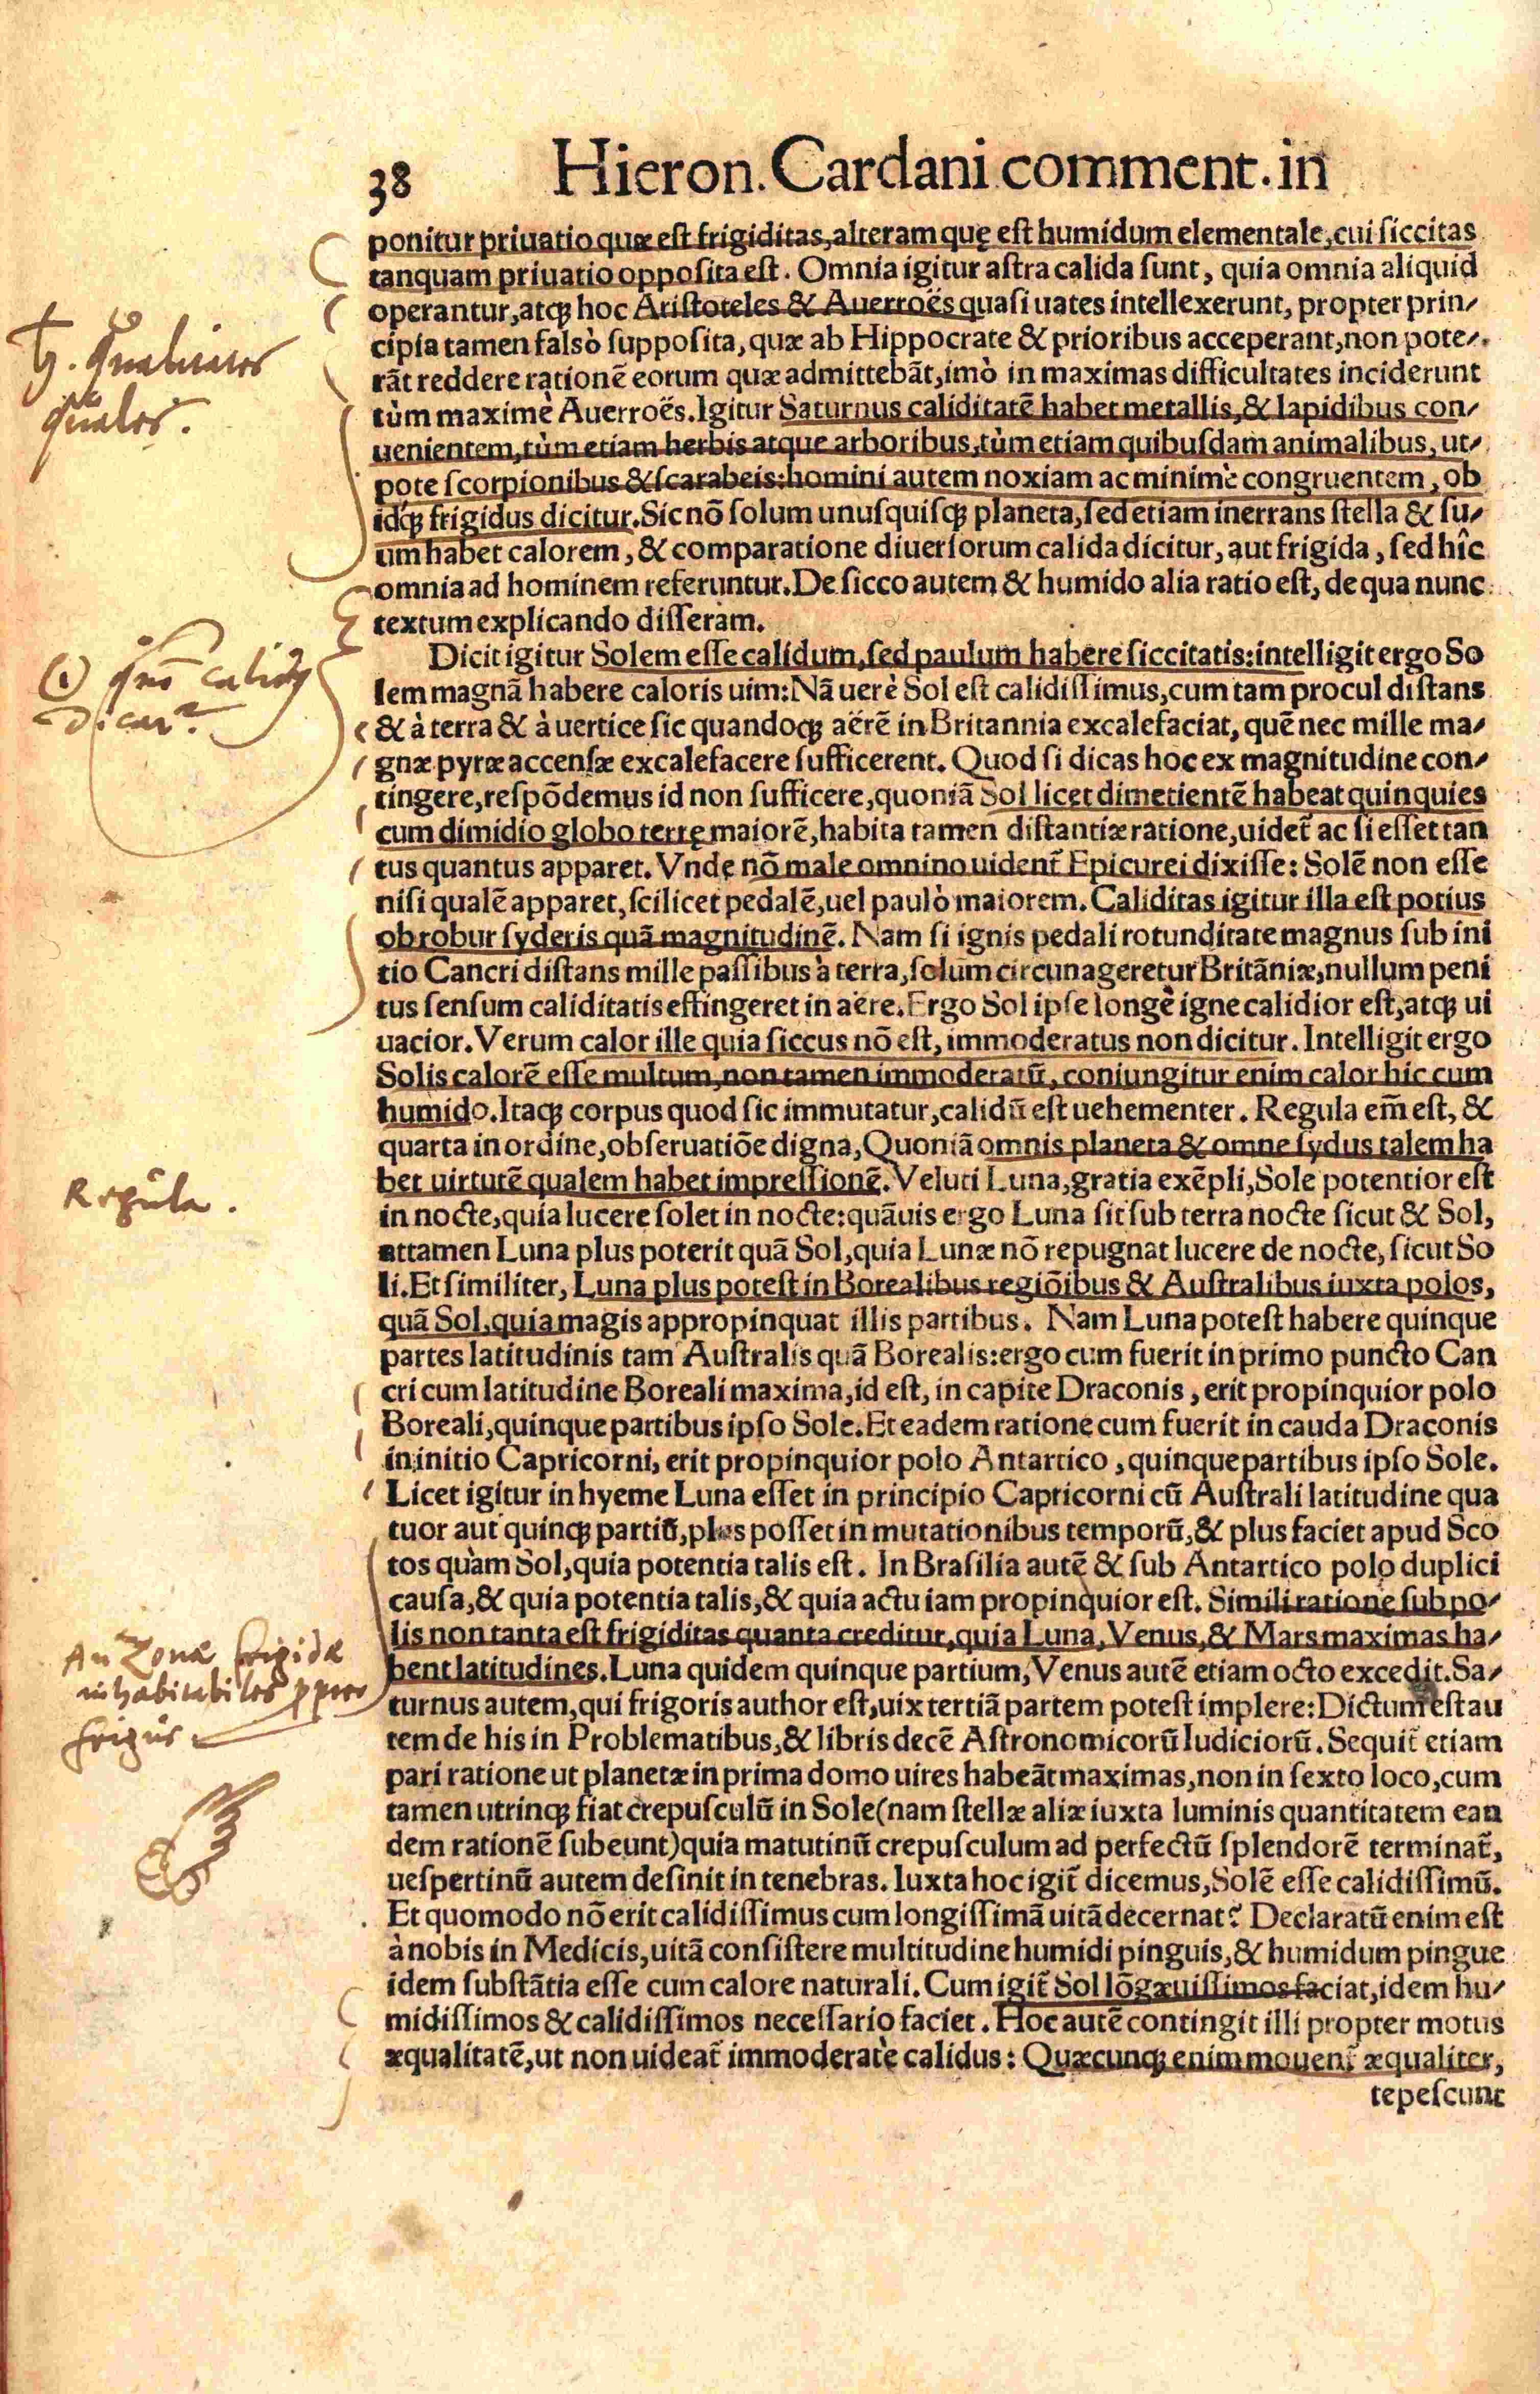 38 Hieron. Cardani comment. in
ponitur priuatio quæ est frigiditas, alteram quę est humidum elementale, cui siccitas
tanquam priuatio opposita est. Omnia igitur astra calida sunt, quia omnia aliquid
operantur, atq; hoc Aristoteles & Auerroës quasi uates intellexerunt, propter prin-
cipia tamen falsò supposita, quæ ab Hippocrate & prioribus acceperant, non pote-
rāt reddere rationē eorum quæ admittebāt, imò in maximas difficultates inciderunt
tùm maximè Auerroës. Igitur Saturnus caliditatē habet metallis, & lapidibus con-
uenientem, tùm etiam herbis atque arboribus, tùm etiam quibusdam animalibus, ut-
pote scorpionibus & scarabeis: homini autem noxiam ac minimè congruentem, ob
idq; frigidus dicitur. Sic nō solum unusquisq; planeta, sed etiam inerrans stella & su-
um habet calorem, & comparatione diuersorum calida dicitur, aut frigida, sed hîc
omnia ad hominem referuntur. De sicco autem & humido alia ratio est, de qua nunc
textum explicando disseram.
Dicit igitur Solem esse calidum, sed paulum habere siccitatis: intelligit ergo So
lem magnā habere caloris uim: Nā uerè Sol est calidissimus, cum tam procul distans
& à terra & à uertice sic quandoq; aërē in Britannia excalefaciat, quē nec mille ma-
gnæ pyræ accensæ excalefacere sufficerent. Quod si dicas hoc ex magnitudine con-
tingere, respōdemus id non sufficere, quoniā Sol licet dimetientē habeat quinquies
cum dimidio globo terrę maiorē, habita tamen distantiæ ratione, uidet̃ ac si esset tan
tus quantus apparet. Vnde nō male omnino uident̃ Epicurei dixisse: Solē non esse
nisi qualē apparet, scilicet pedalē, uel paulò maiorem. Caliditas igitur illa est potius
ob robur syderis quā magnitudinē. Nam si ignis pedali rotunditate magnus sub ini
tio Cancri distans mille passibus à terra, solùm circunageretur Britāniæ, nullum peni
tus sensum caliditatis effingeret in aëre. Ergo Sol ipse longè igne calidior est, atq; ui
uacior. Verum calor ille quia siccus nō est, immoderatus non dicitur. Intelligit ergo
Solis calorē esse multum, non tamen immoderatū, coniungitur enim calor hic cum
humido. Itaq; corpus quod sic immutatur, calidū est uehementer. Regula em̃ est, &
quarta in ordine, obseruatiōe digna, Quoniā omnis planeta & omne sydus talem ha
bet uirtutē qualem habet impressionē. Veluti Luna, gratia exēpli, Sole potentior est
in nocte, quia lucere solet in nocte: quāuis ergo Luna sit sub terra nocte sicut & Sol,
attamen Luna plus poterit quā Sol, quia Lunæ nō repugnat lucere de nocte, sicut So
li. Et similiter, Luna plus potest in Borealibus regiōibus & Australibus iuxta polos,
quā Sol, quia magis appropinquat illis partibus. Nam Luna potest habere quinque
partes latitudinis tam Australis quā Borealis: ergo cum fuerit in primo puncto Can
cri cum latitudine Boreali maxima, id est, in capite Draconis, erit propinquior polo
Boreali, quinque partibus ipso Sole. Et eadem ratione cum fuerit in cauda Draconis
in initio Capricorni, erit propinquior polo Antartico, quinque partibus ipso Sole.
Licet igitur in hyeme Luna esset in principio Capricorni cū Australi latitudine qua
tuor aut quinq; partiū, plus posset in mutationibus temporū, & plus faciet apud Sco
tos quàm Sol, quia potentia talis est. In Brasilia autē & sub Antartico polo duplici
causa, & quia potentia talis, & quia actu iam propinquior est. Simili ratione sub po-
lis non tanta est frigiditas quanta creditur, quia Luna, Venus, & Mars maximas ha-
bent latitudines. Luna quidem quinque partium, Venus autē etiam octo excedit. Sa-
turnus autem, qui frigoris author est, uix tertiā partem potest implere: Dictum est au
tem de his in Problematibus, & libris decē Astronomicorū Iudiciorū. Sequit̃ etiam
pari ratione ut planetæ in prima domo uires habeāt maximas, non in sexto loco, cum
tamen utrinq; fiat crepusculū in Sole (nam stellæ aliæ iuxta luminis quantitatem ean
dem rationē subeunt) quia matutinū crepusculum ad perfectū splendorē terminat̃,
uespertinū autem desinit in tenebras. Iuxta hoc igit̃ dicemus, Solē esse calidissimū.
Et quomodo nō erit calidissimus cum longissimā uitā decernat? Declaratū enim est
à nobis in Medicis, uitā consistere multitudine humidi pinguis, & humidum pingue
idem substātia esse cum calore naturali. Cum igit̃ Sol lōgæuissimos faciat, idem hu-
midissimos & calidissimos necessario faciet. Hoc autē contingit illi propter motus
æqualitatē, ut non uideat̃ immoderatè calidus: Quæcunq; enim mouent̃ æqualiter,
tepescunt
♄. qualitates
quales.
calidus
dicat̃
Regula.
An Zonæ frigidæ
inhabitabiles ppter
frigus